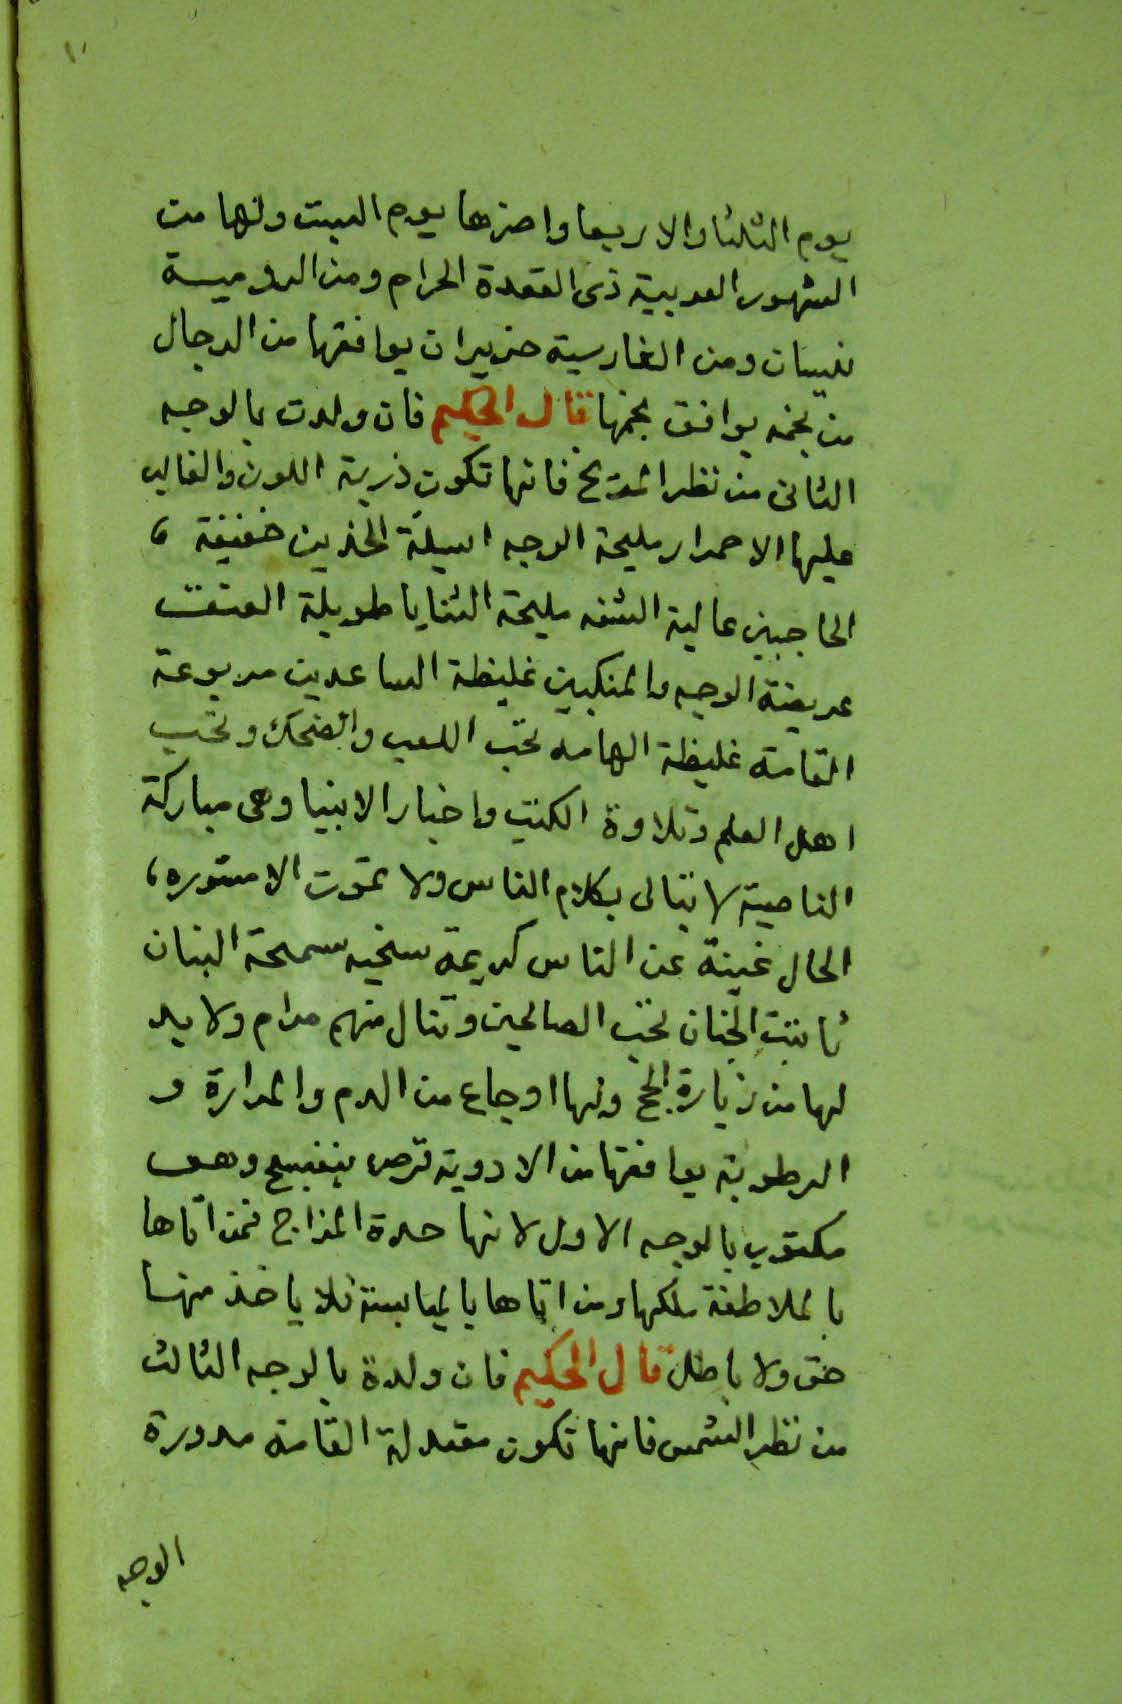 يوم الثلثا والاربعا واضرها يوم السبت ولها من
الشهور العربية ذى القعدة الحرام ومن الرومية
نيسان ومن الفارسية حزيران يوافقها من الرجال
من نجمه يوافق نجمها قال الحكيم فان ولدت بالوجه
الثانى من نظر المريخ فانها تكون ذرية اللون والغالب
عليها الاحمرار مليحة الوجه اسيلة الخدين خفيفة
الحاجبين عالية الشفه مليحة الثنايا طويلة العنق
عريضة الوجه والمنكبين غليظة الساعدين مربوعة
القامة غليظة الهامه تحب اللعب والضحك وتحب
اهل العلم وتلاوة الكتب واخبار الانبيا وهى مباركة
الناصية لا تبالى بكلام الناس ولا تموت الا مستوره
الحال غنية عن الناس كريمة سخيه سمحة البنان
ثابتت الجنان تحب الصالحين وتنال منهم مرام ولا بد
لها من زيارة الحج ولها اوجاع من الدم والمرارة و
الرطوبة يوافقها من الادوية قرص بنفسج وهو
مكتوب بالوجه الاول لانها حدة المزاج فمن اتاها
بالملاطفة ملكها ومن اتاها باليابسة فلا ياخذ منها
حق ولا باطل قال الحكيم فان ولدة بالوجه الثالث
من نظر الشمس فانها تكون معتدلة القامه مدورة
الوجه